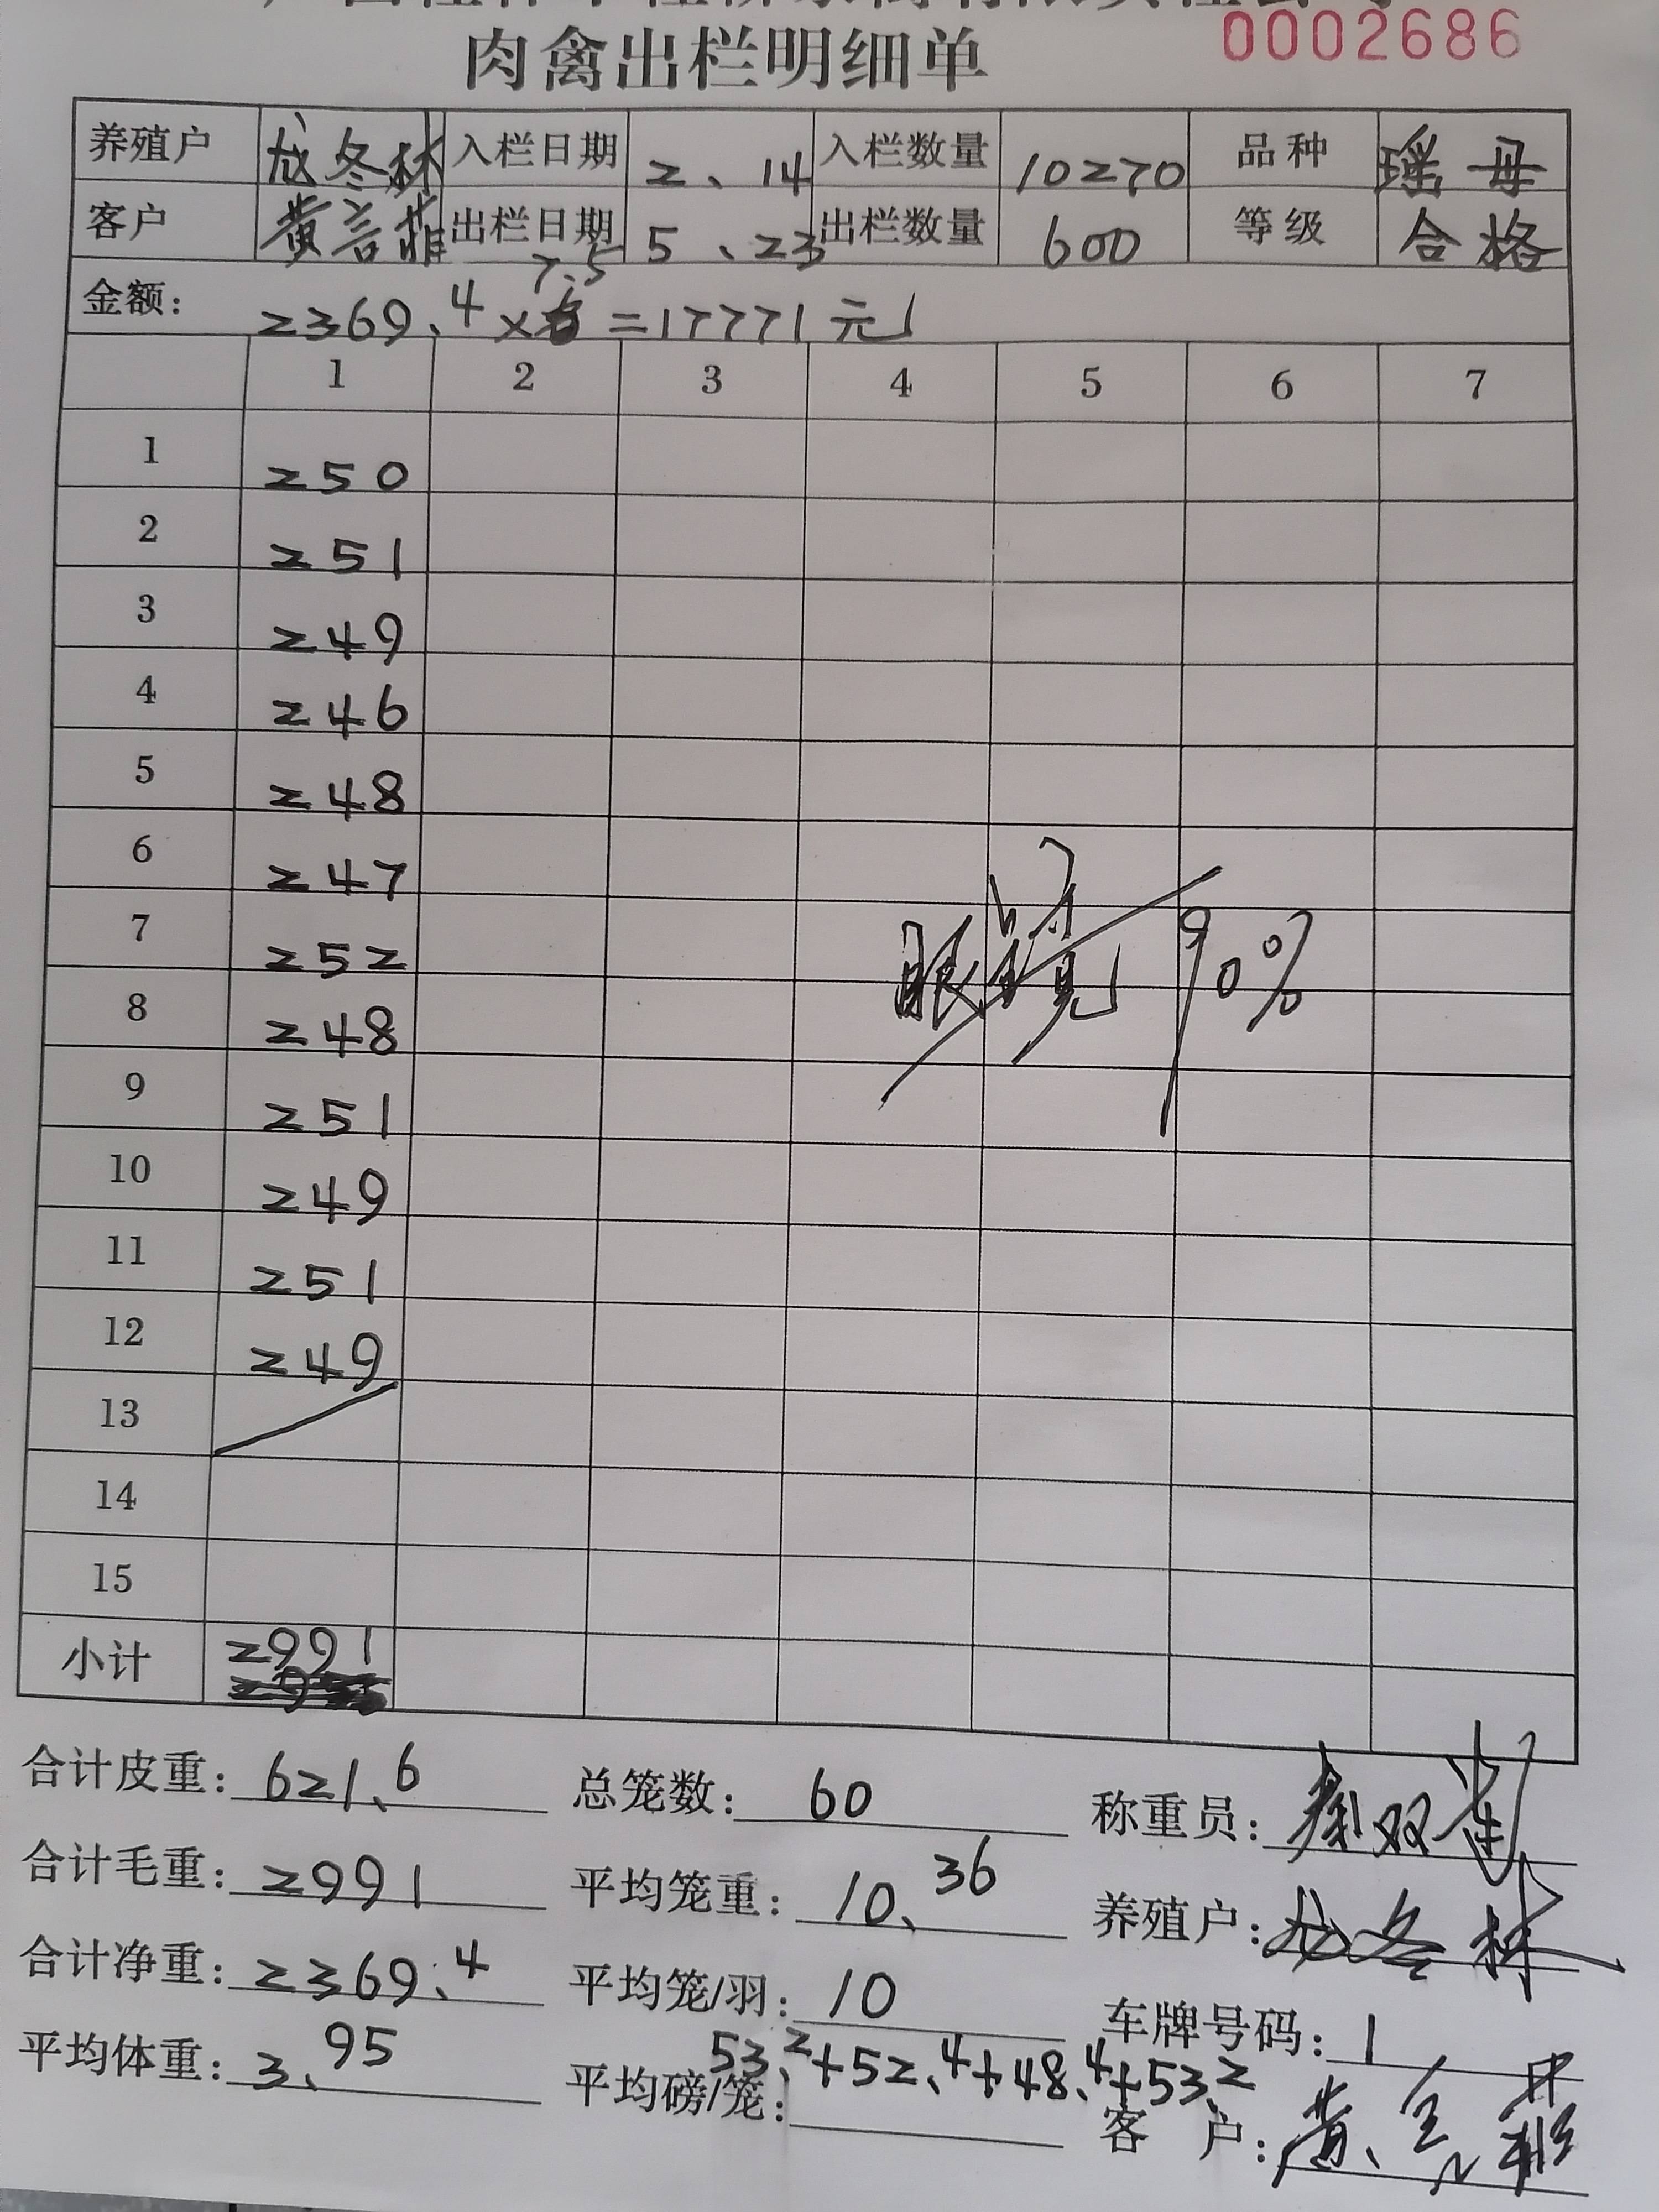 0002686
肉禽出栏明细单
养殖户 龙冬林 入栏日期 2、14 入栏数量 10270 品种 瑶母
客户 黄言菲 出栏日期 5、23 出栏数量 600 等级 合格
7.5
金额: 2369.4× =17771元
1 2 3 4 5 6 7
1 250
2 251
3 249
4 246
5 248
6 247
7 252
8 248
9 251
10 249
11 251
12 249
13
14
15
眼 90%
小计 2991
合计皮重: 621.6 总笼数: 60 称重员: 秦双
合计毛重: 2991 平均笼重: 10.36 养殖户: 龙冬林
合计净重: 2369.4 平均笼/羽: 10 车牌号码: 1
平均体重: 3.95 平均磅/笼: 53.2+52.4+48.4+53.2
客 户: 黄言菲